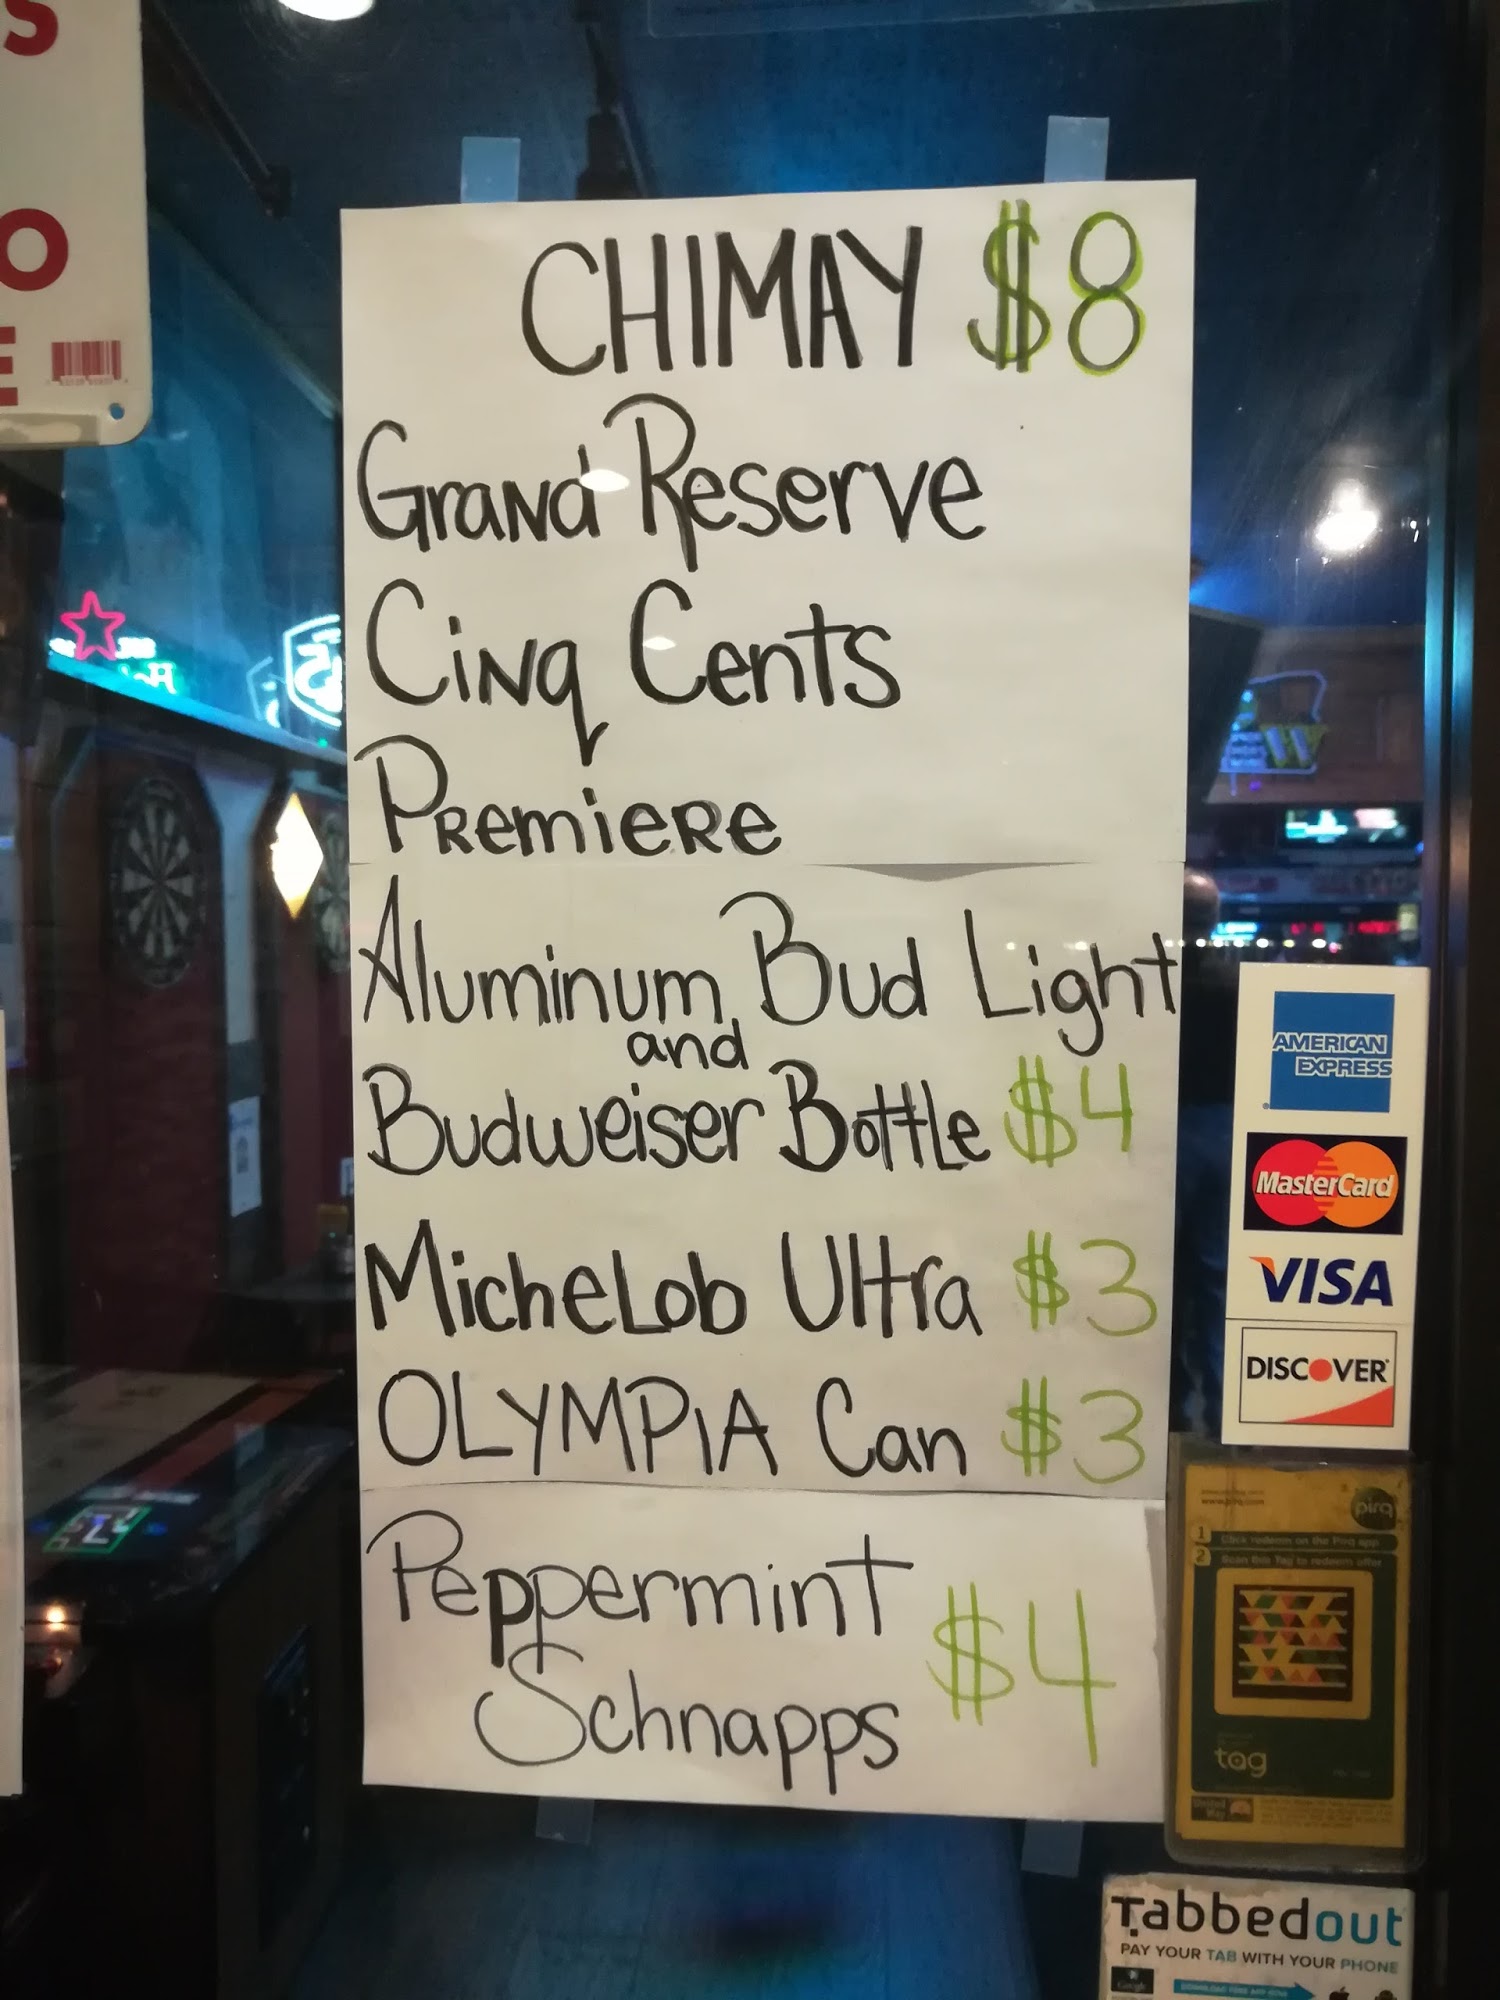 S
O
E
CHIMAY $8
Grand Reserve
Cinq Cents
Premiere
Aluminum Bud Light
and
Budweiser Bottle $4
Michelob Ultra $3
OLYMPIA Can $3
Peppermint
Schnapps $4
AMERICAN
EXPRESS
MasterCard
VISA
DISCOVER
pirq
1 Click redeem on the Pirq app
2 Scan this Tag to redeem offer
tag
Tabbedout
PAY YOUR TAB WITH YOUR PHONE